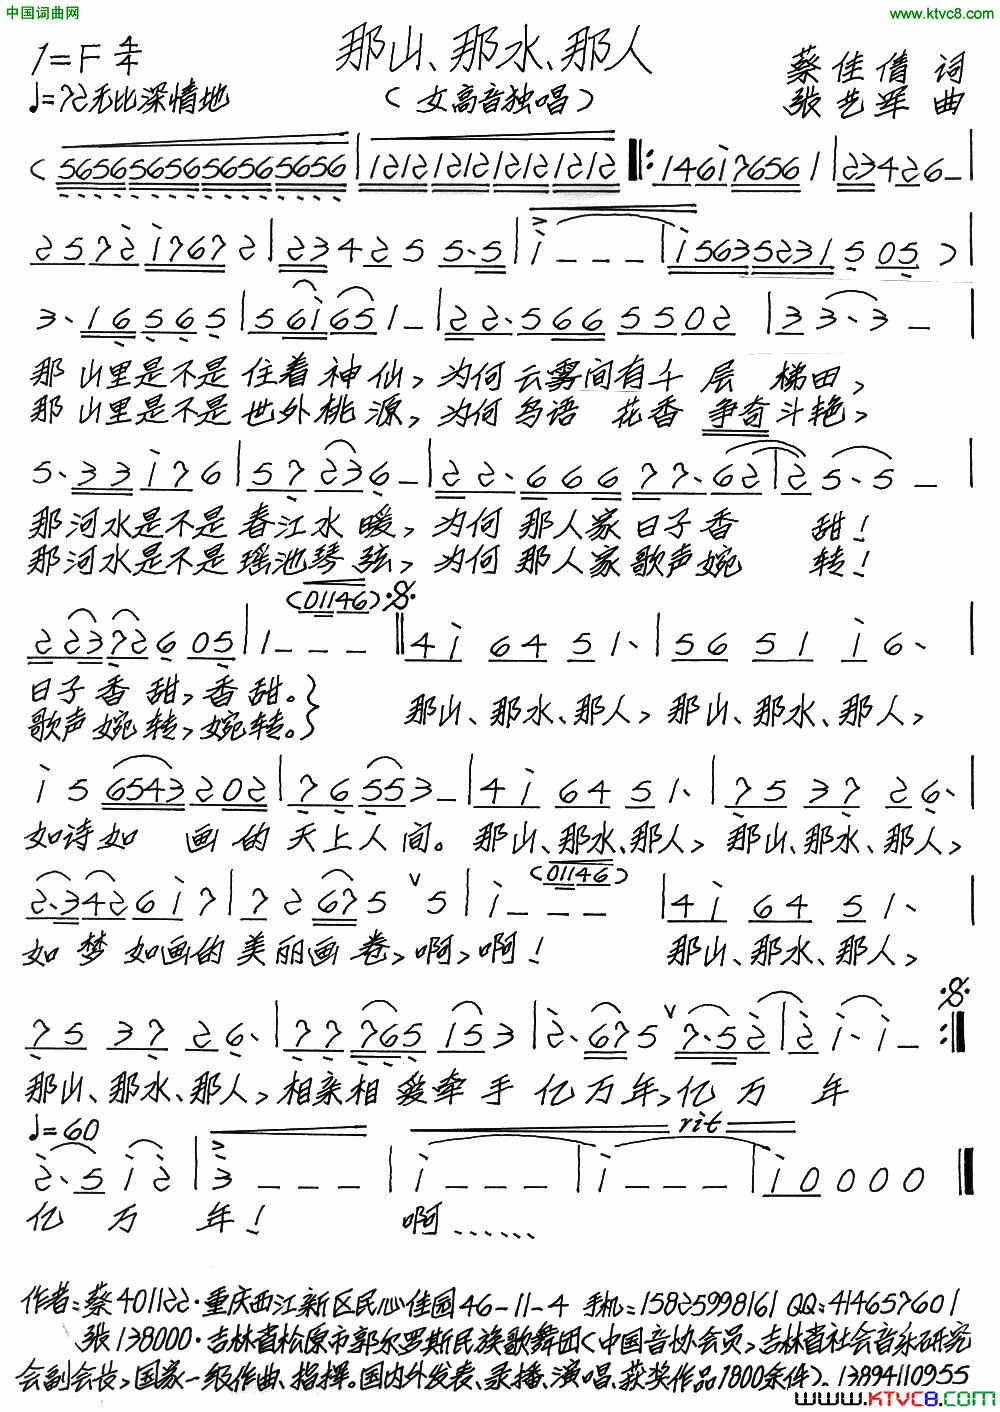 中国词曲网
www.ktvc8.com
1=F 4/4
那山、那水、那人
蔡佳倩 词
♩=72 无比深情地
（女高音独唱）
张艺军 曲
(5656565656565656|1212121212121212‖:146i76561|23426-|
2572i7672|23425 5·5|i---|i56352315 05)|
3·16565|56i651-|22·5665502|33·3-|
那山里是不是住着神仙，为何云雾间有千层梯田，
那山里是不是世外桃源，为何鸟语花香争奇斗艳，
5·33i76|57236-|22·66677·62|25·5-|
那河水是不是春江水暖，为何那人家日子香甜！
那河水是不是瑶池琴弦，为何那人家歌声婉转！
(01146)
22372605|1---‖4i 64 51·|56 51 i6·|
日子香甜，香甜。}
歌声婉转，婉转。}
那山、那水、那人，那山、那水、那人，
i56543202|76553-|4i 64 51·|75 37 26·|
如诗如画的天上人间。那山、那水、那人，那山、那水、那人，
(01146)
2·3426i7|72675 ∨5|i---|4i 64 51·|
如梦如画的美丽画卷，啊，啊！那山、那水、那人，
75 37 26·|77765 153|2·675 ∨7·52|2i·i-:‖
那山、那水、那人，相亲相爱牵手亿万年，亿万年
♩=60
rit
2·5i2|3---|i---|i---|i0000‖
亿万年！啊……
作者：蔡401122·重庆西江新区民心佳园46-11-4 手机：15825998161 QQ：414657601
张138000·吉林省松原市郭尔罗斯民族歌舞团（中国音协会员，吉林省社会音乐研究
会副会长，国家一级作曲、指挥。国内外发表、录播、演唱、获奖作品1800余件）、13894110955
www.KTVC8.com